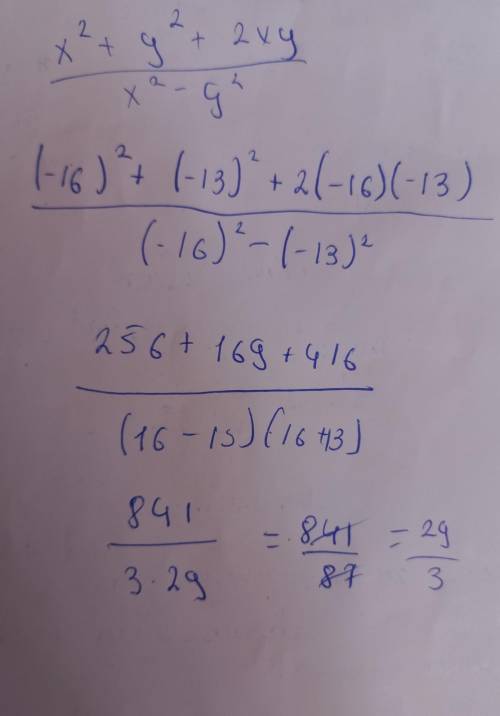 x² + y² + 2xy
x² - y²
(-16)² + (-13)² + 2(-16)(-13)
(-16)² - (-13)²
256 + 169 + 416
(16 - 13)(16 + 13)
841 = 841 = 29
3·29 87 3